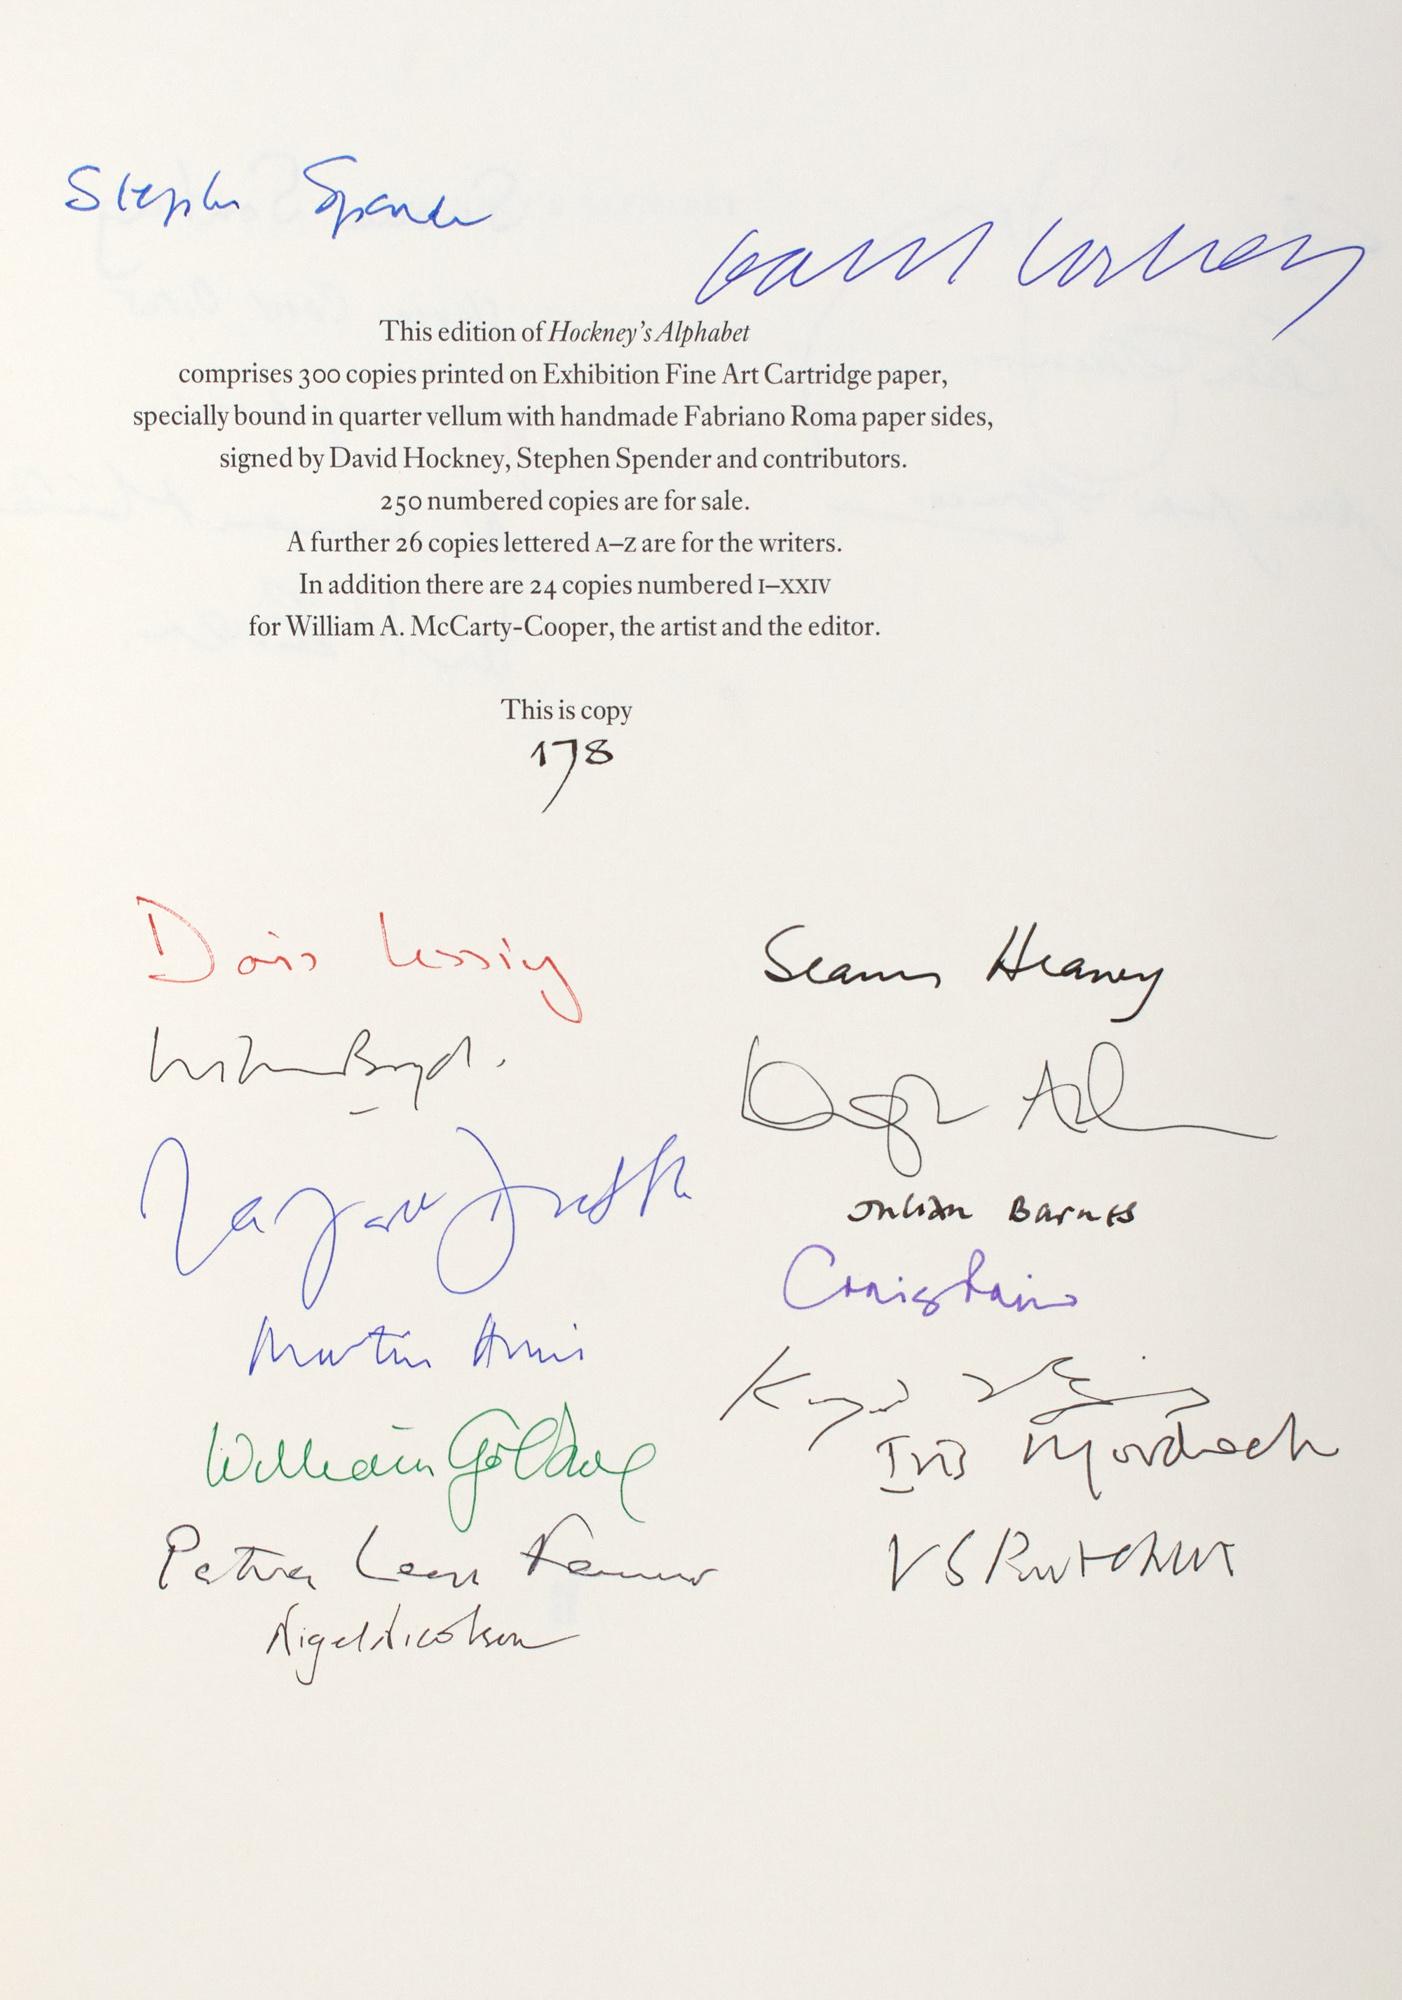 Stephen Spender
David Hockney
This edition of Hockney's Alphabet
comprises 300 copies printed on Exhibition Fine Art Cartridge paper,
specially bound in quarter vellum with handmade Fabriano Roma paper sides,
signed by David Hockney, Stephen Spender and contributors.
250 numbered copies are for sale.
A further 26 copies lettered A–Z are for the writers.
In addition there are 24 copies numbered I–XXIV
for William A. McCarty-Cooper, the artist and the editor.
This is copy
178
Doris Lessing
William Boyd.
Margaret Drabble
Martin Amis
William Golding
Patrick Leigh Fermor
Nigel Nicolson
Seamus Heaney
Douglas Adams
Julian Barnes
Craig Raine
Iris Murdoch
V S Pritchett